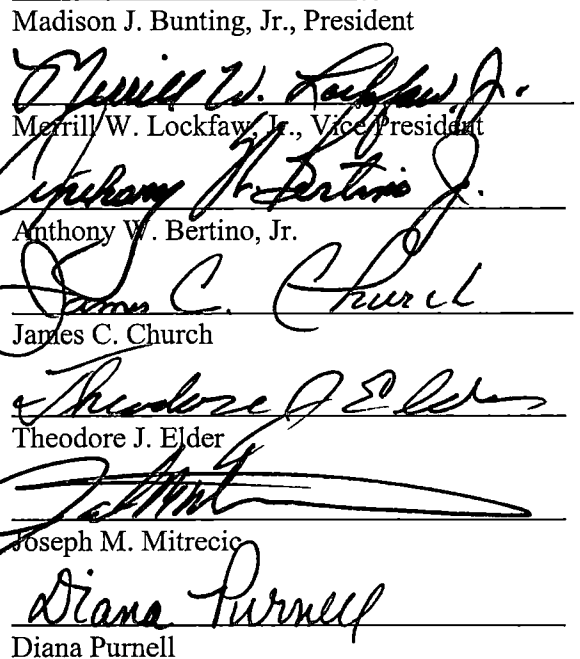 Madison J. Bunting, Jr., President
Merrill W. Lockfaw, Jr.
Merrill W. Lockfaw, Jr., Vice President
Anthony W. Bertino Jr.
Anthony W. Bertino, Jr.
James C. Church
James C. Church
Theodore J Elder
Theodore J. Elder
Joseph M. Mitrecic
Diana Purnell
Diana Purnell